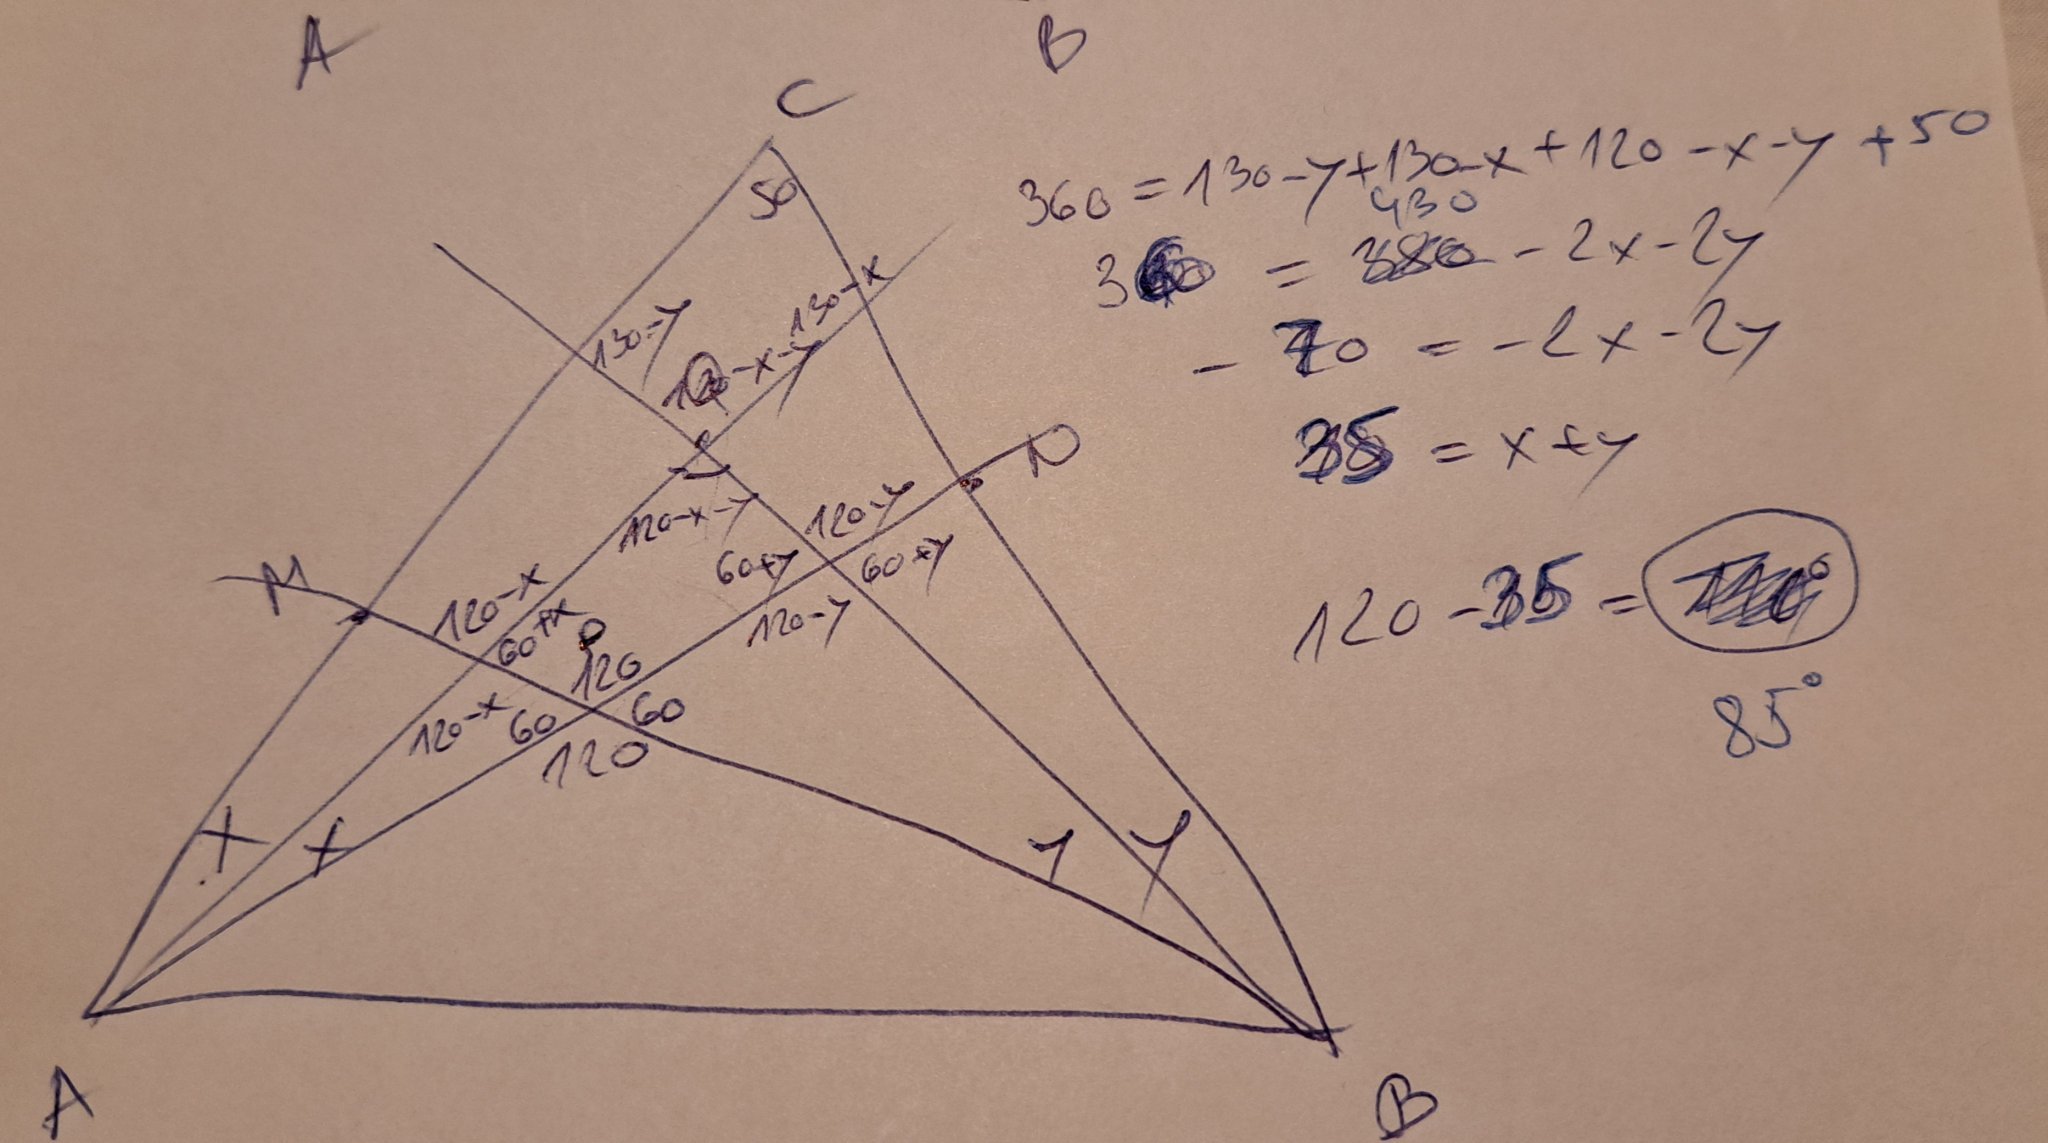 A
B
C
50
360 = 130-y+130-x+120-x-y+50
430
360 = 380 - 2x-2y
- 70 = -2x-2y
35 = x+y
120 -35 =
85°
130-y
130-x
120-x-y
S
N
M
120-x-y
120-y
60+y
60+y
120-y
120-x
60+x
P
120
120-x
60
60
120
x
x
y
y
A
B